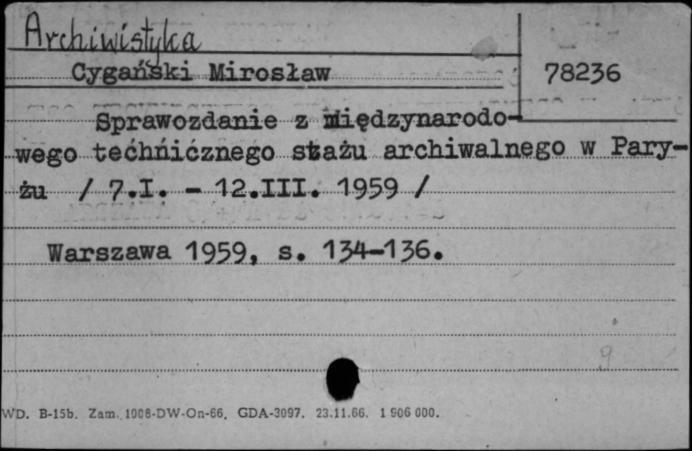 Archiwistyka
Cygański Mirosław 78236
Sprawozdanie z międzynarodo-
wego technicznego stażu archiwalnego w Pary-
żu / 7.I. - 12.III. 1959 /
Warszawa 1959, s. 134-136.
9
WD. B-15b. Zam. 1008-DW-On-66. GDA-3097. 23.11.66. 1 906 000.